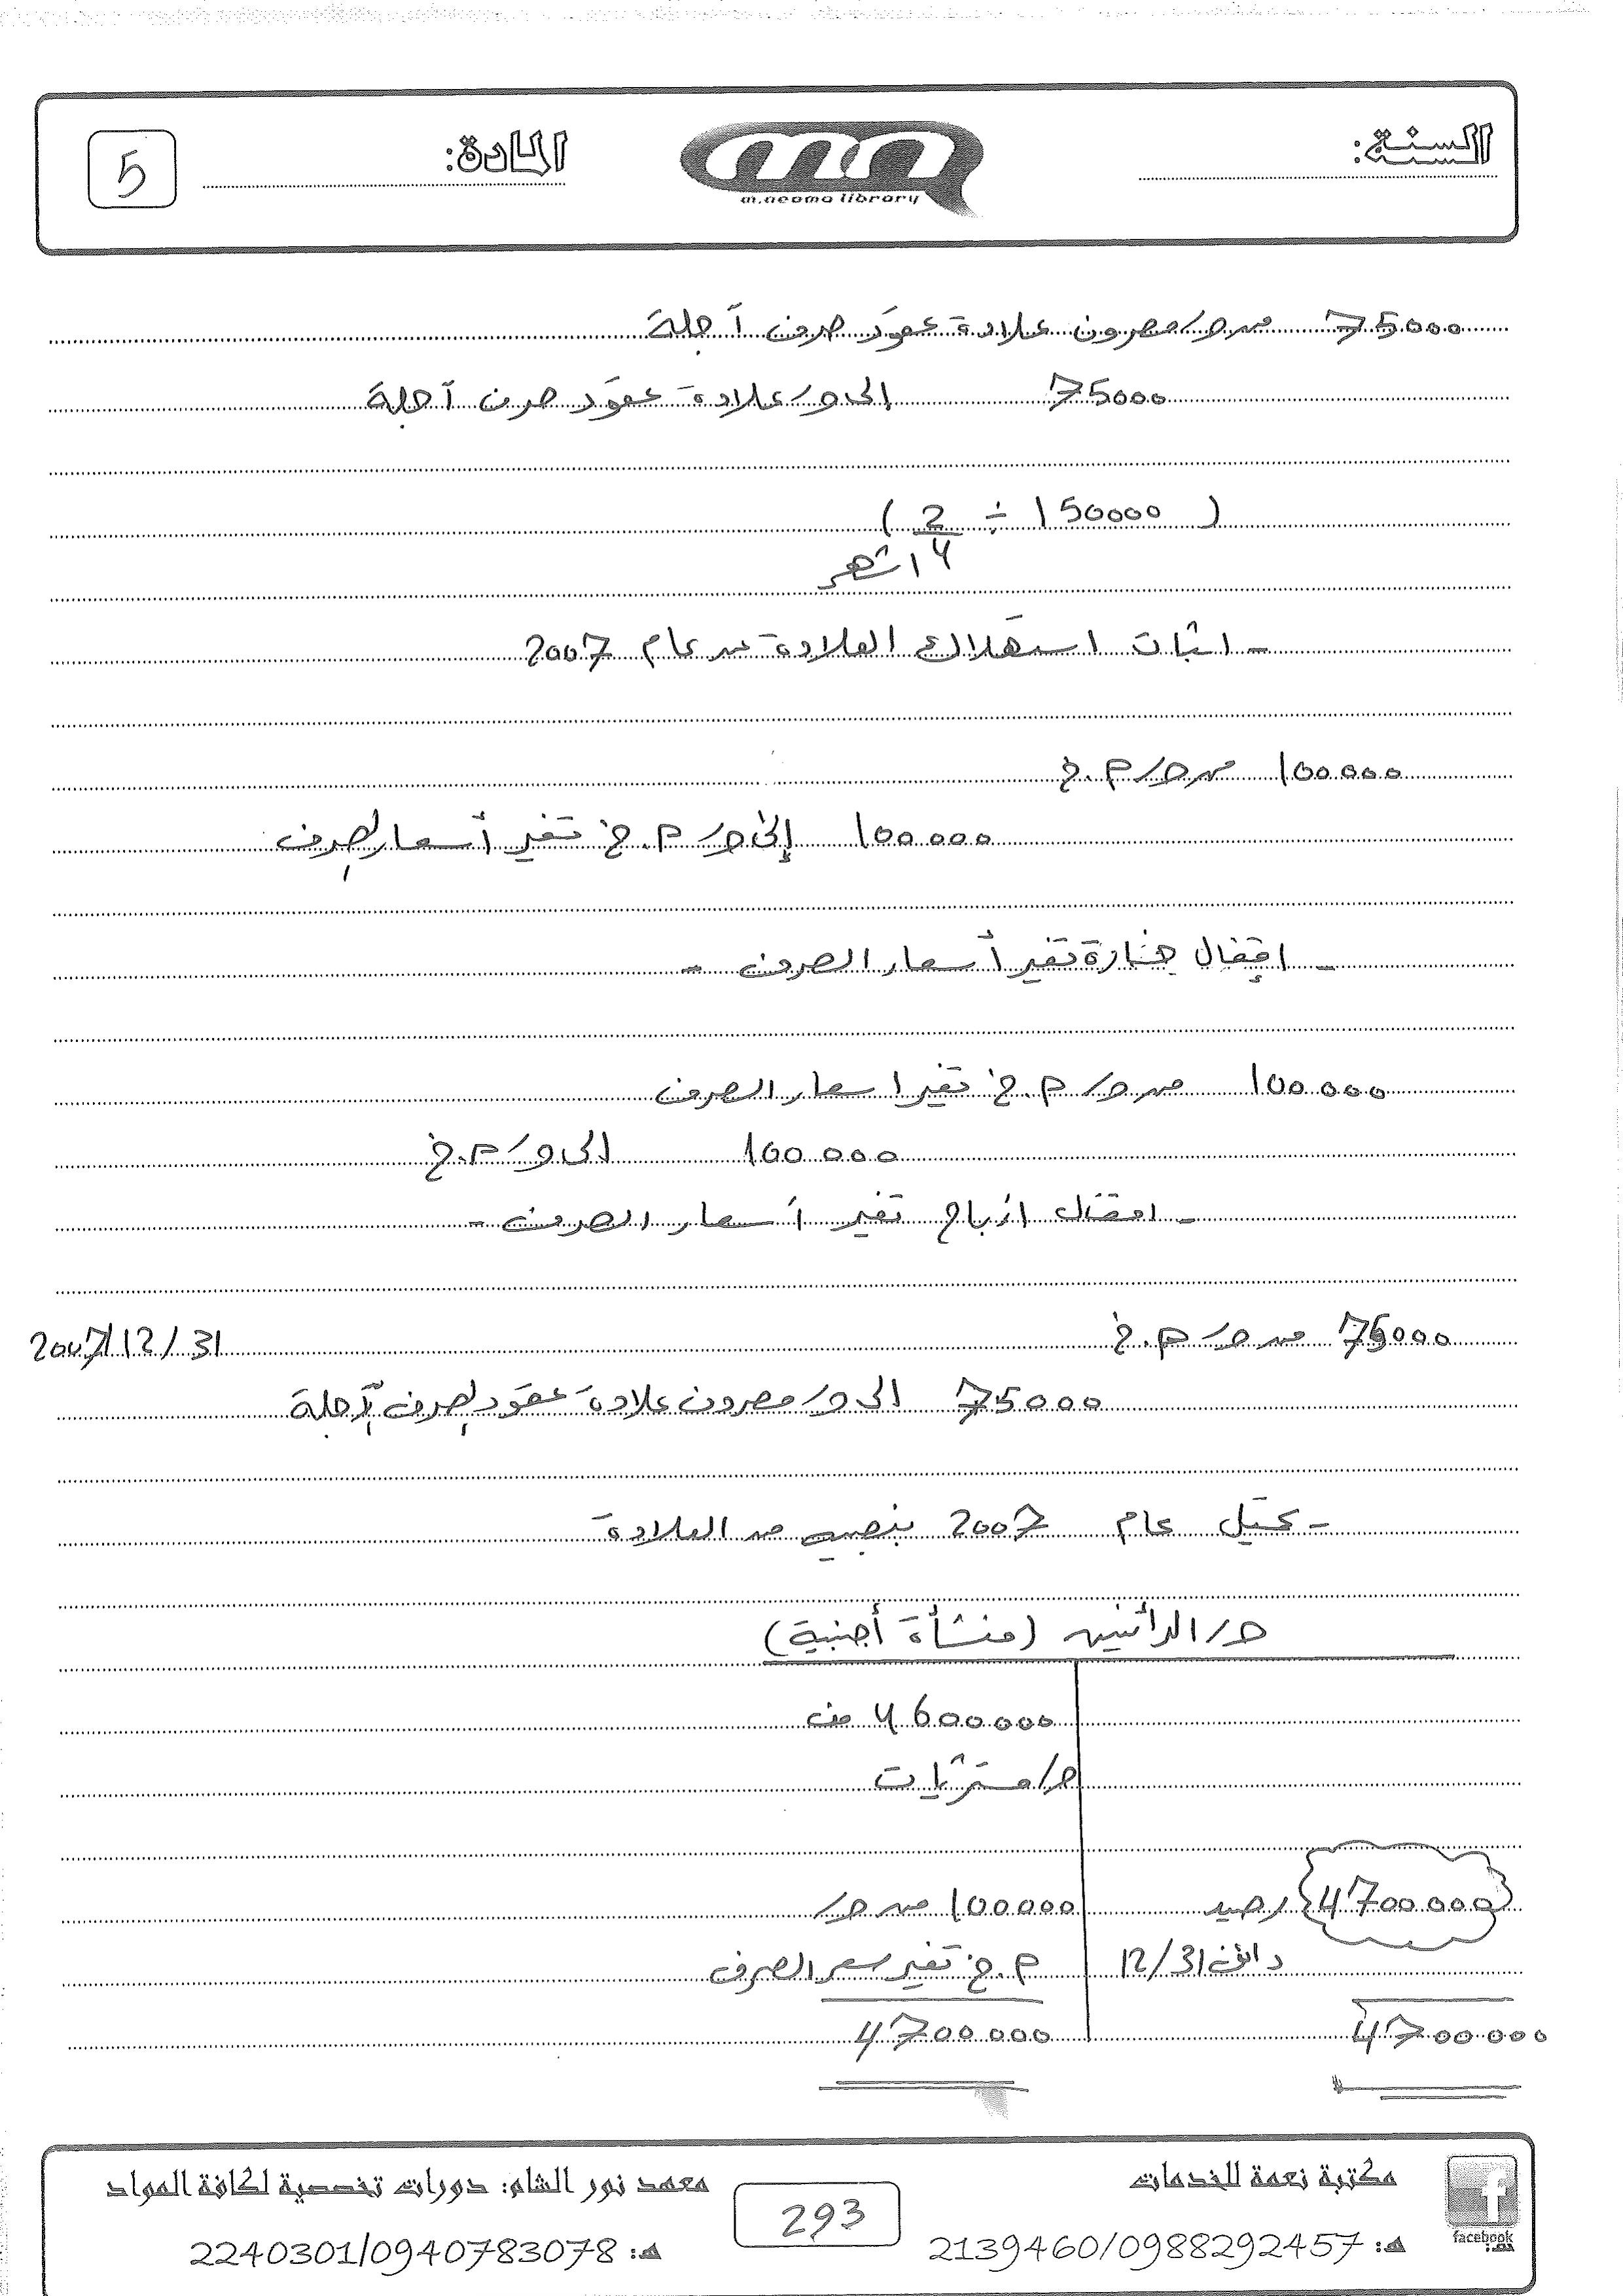 السنة:
m.neoma library
المادة:
5
75000 من حـ/ مصروف علاوة عقود صرف آجلة
75000 إلى حـ/ علاوة عقود صرف آجلة
( 150000 ÷ 2 )
4 أشهر
- اثبات استهلاك العلاوة عن عام 2007
100.000 من حـ/ م.خ
100.000 إلى حـ/ م.خ تغير أسعار الصرف
- اقفال خسارة تغير أسعار الصرف -
100.000 من حـ/ م.خ تغير اسعار الصرف
100.000 الى حـ/ م.خ
- اقفال ارباح تغير أسعار الصرف -
75000 من حـ/ م.خ 2007/12/31
75000 الى حـ/ مصروف علاوة عقود صرف آجلة
- تحميل عام 2007 بنصيبه من العلاوة
حـ/ الدائنين (منشأة أجنبية)
4600000 من
حـ/ مشتريات
4700000 رصيد
100000 من حـ/
دائن 12/31
م.خ تغير سعر الصرف
4700000
4700000
مكتبة نعمة للخدمات
هـ: 2139460/0988292457
facebook
293
معهد نور الشام: دورات تخصصية لكافة المواد
هـ: 2240301/0940783078